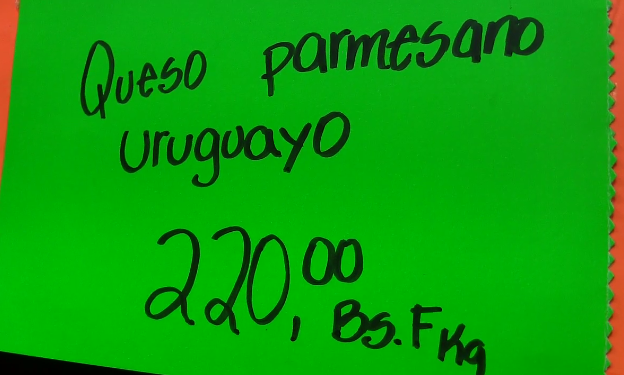 Queso parmesano
uruguayo
220,00 Bs.F Kg